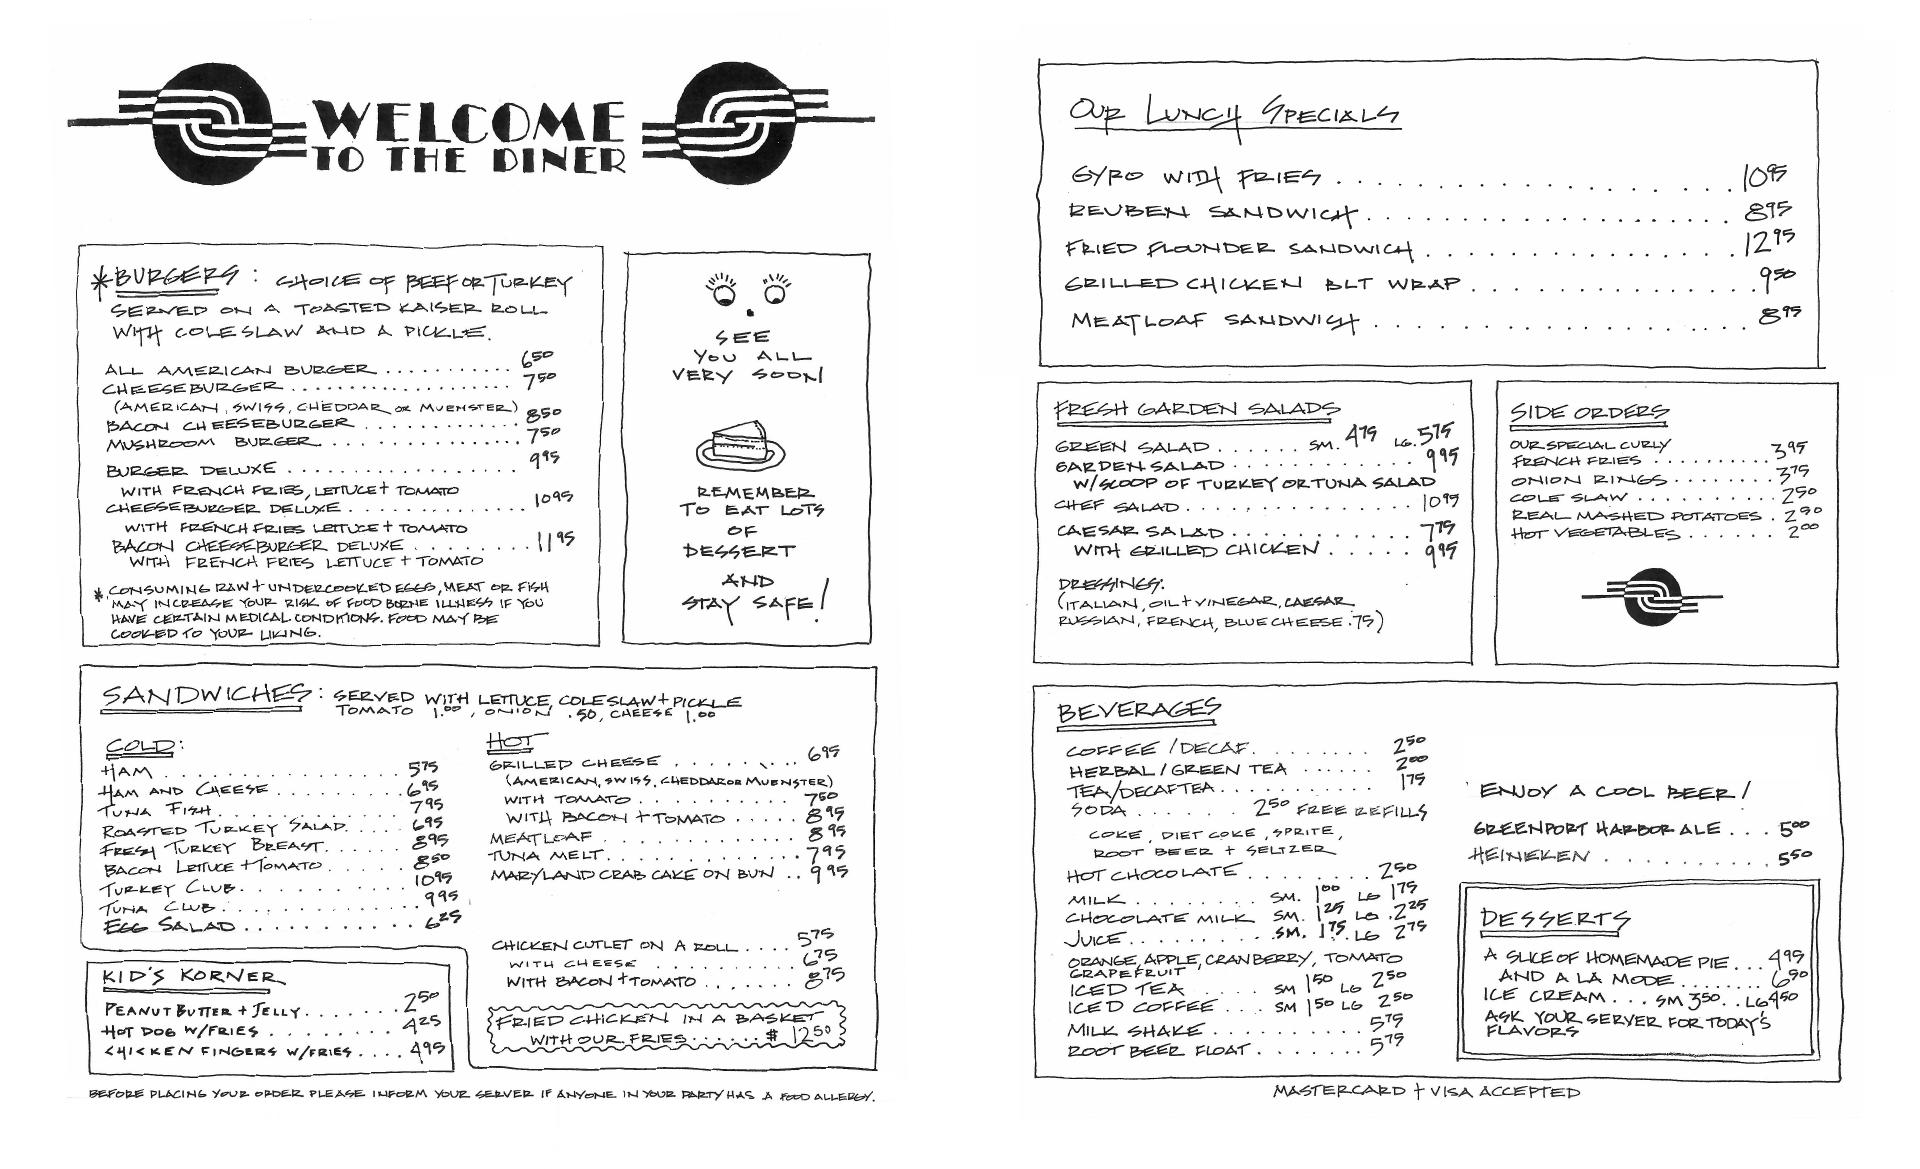 WELCOME
TO THE DINER
*BURGERS: CHOICE OF BEEF OR TURKEY
SERVED ON A TOASTED KAISER ROLL
WITH COLESLAW AND A PICKLE.
ALL AMERICAN BURGER .......... 6.50
CHEESEBURGER .......... 7.50
(AMERICAN, SWISS, CHEDDAR OR MUENSTER)
BACON CHEESEBURGER .......... 8.50
MUSHROOM BURGER .......... 7.50
BURGER DELUXE .......... 9.95
WITH FRENCH FRIES, LETTUCE + TOMATO
CHEESEBURGER DELUXE .......... 10.95
WITH FRENCH FRIES LETTUCE + TOMATO
BACON CHEESEBURGER DELUXE .......... 11.95
WITH FRENCH FRIES LETTUCE + TOMATO
* CONSUMING RAW + UNDERCOOKED EGGS, MEAT OR FISH
MAY INCREASE YOUR RISK OF FOOD BORNE ILLNESS IF YOU
HAVE CERTAIN MEDICAL CONDITIONS. FOOD MAY BE
COOKED TO YOUR LIKING.
SEE
YOU ALL
VERY SOON!
REMEMBER
TO EAT LOTS
OF
DESSERT
AND
STAY SAFE!
SANDWICHES: SERVED WITH LETTUCE, COLESLAW + PICKLE
TOMATO 1.00, ONION .50, CHEESE 1.00
COLD:
HAM .......... 5.75
HAM AND CHEESE .......... 6.95
TUNA FISH .......... 7.95
ROASTED TURKEY SALAD .......... 6.95
FRESH TURKEY BREAST .......... 8.95
BACON LETTUCE + TOMATO .......... 8.50
TURKEY CLUB .......... 10.95
TUNA CLUB .......... 9.95
EGG SALAD .......... 6.25
HOT
GRILLED CHEESE .......... 6.95
(AMERICAN, SWISS, CHEDDAR OR MUENSTER)
WITH TOMATO .......... 7.50
WITH BACON + TOMATO .......... 8.95
MEATLOAF .......... 8.95
TUNA MELT .......... 7.95
MARYLAND CRAB CAKE ON BUN .. 9.95
CHICKEN CUTLET ON A ROLL .... 5.75
WITH CHEESE .......... 6.75
WITH BACON + TOMATO .......... 8.75
FRIED CHICKEN IN A BASKET
WITH OUR FRIES ...... $ 12.50
KID'S KORNER
PEANUT BUTTER + JELLY .......... 2.50
HOT DOG W/FRIES .......... 4.25
CHICKEN FINGERS W/FRIES .... 4.95
BEFORE PLACING YOUR ORDER PLEASE INFORM YOUR SERVER IF ANYONE IN YOUR PARTY HAS A FOOD ALLERGY.
OUR LUNCH SPECIALS
GYRO WITH FRIES .......... 10.95
REUBEN SANDWICH .......... 8.95
FRIED FLOUNDER SANDWICH .......... 12.95
GRILLED CHICKEN BLT WRAP .......... 9.50
MEATLOAF SANDWICH .......... 8.95
FRESH GARDEN SALADS
GREEN SALAD ...... SM. 4.75 LG. 5.75
GARDEN SALAD .......... 9.95
W/SCOOP OF TURKEY OR TUNA SALAD
CHEF SALAD .......... 10.95
CAESAR SALAD .......... 7.75
WITH GRILLED CHICKEN ..... 9.95
DRESSINGS:
(ITALIAN, OIL + VINEGAR, CAESAR
RUSSIAN, FRENCH, BLUE CHEESE .75)
SIDE ORDERS
OUR SPECIAL CURLY
FRENCH FRIES .......... 3.95
ONION RINGS .......... 3.75
COLE SLAW .......... 2.50
REAL MASHED POTATOES . 2.50
HOT VEGETABLES ...... 2.00
BEVERAGES
COFFEE / DECAF .......... 2.50
HERBAL / GREEN TEA ...... 2.00
TEA/DECAF TEA .......... 1.75
SODA ...... 2.50 FREE REFILLS
COKE, DIET COKE, SPRITE,
ROOT BEER + SELTZER
HOT CHOCOLATE .......... 2.50
MILK .......... SM. 1.00 LG 1.75
CHOCOLATE MILK SM. 1.25 LG. 2.25
JUICE .......... SM. 1.75 LG 2.75
ORANGE, APPLE, CRANBERRY, TOMATO
GRAPEFRUIT
ICED TEA .... SM 1.50 LG 2.50
ICED COFFEE ... SM 1.50 LG 2.50
MILK SHAKE .......... 5.75
ROOT BEER FLOAT .......... 5.75
ENJOY A COOL BEER!
GREENPORT HARBOR ALE ... 5.00
HEINEKEN .......... 5.50
DESSERTS
A SLICE OF HOMEMADE PIE ... 4.95
AND A LA MODE ...... 6.50
ICE CREAM ... SM 3.50 .. LG 4.50
ASK YOUR SERVER FOR TODAY'S
FLAVORS
MASTERCARD + VISA ACCEPTED